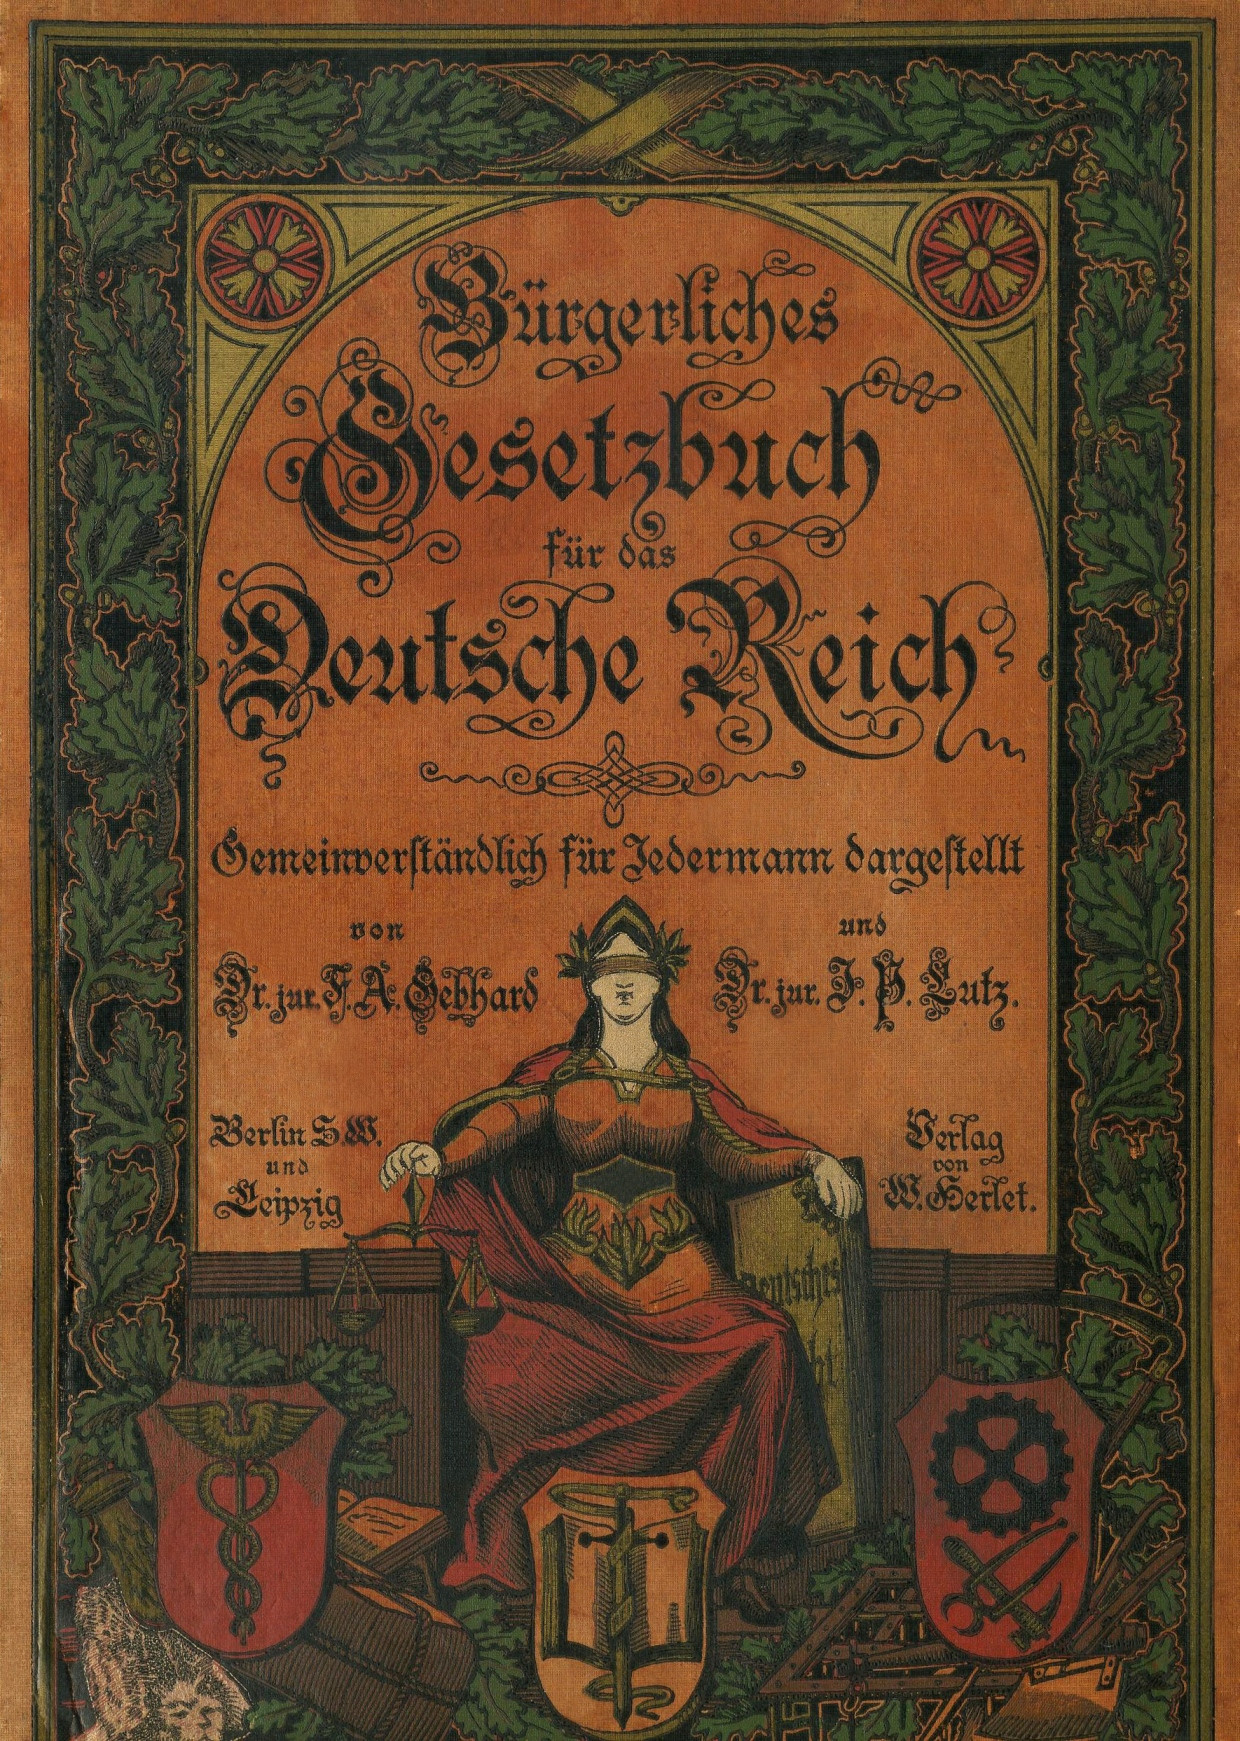 Bürgerliches
Gesetzbuch
für das
Deutsche Reich
Gemeinverständlich für Jedermann dargestellt
von
Dr. jur. F. A. Gebhard
und
Dr. jur. J. P. Lutz.
Berlin S.W.
und
Leipzig
Verlag
von
W. Herlet.
Deutsches